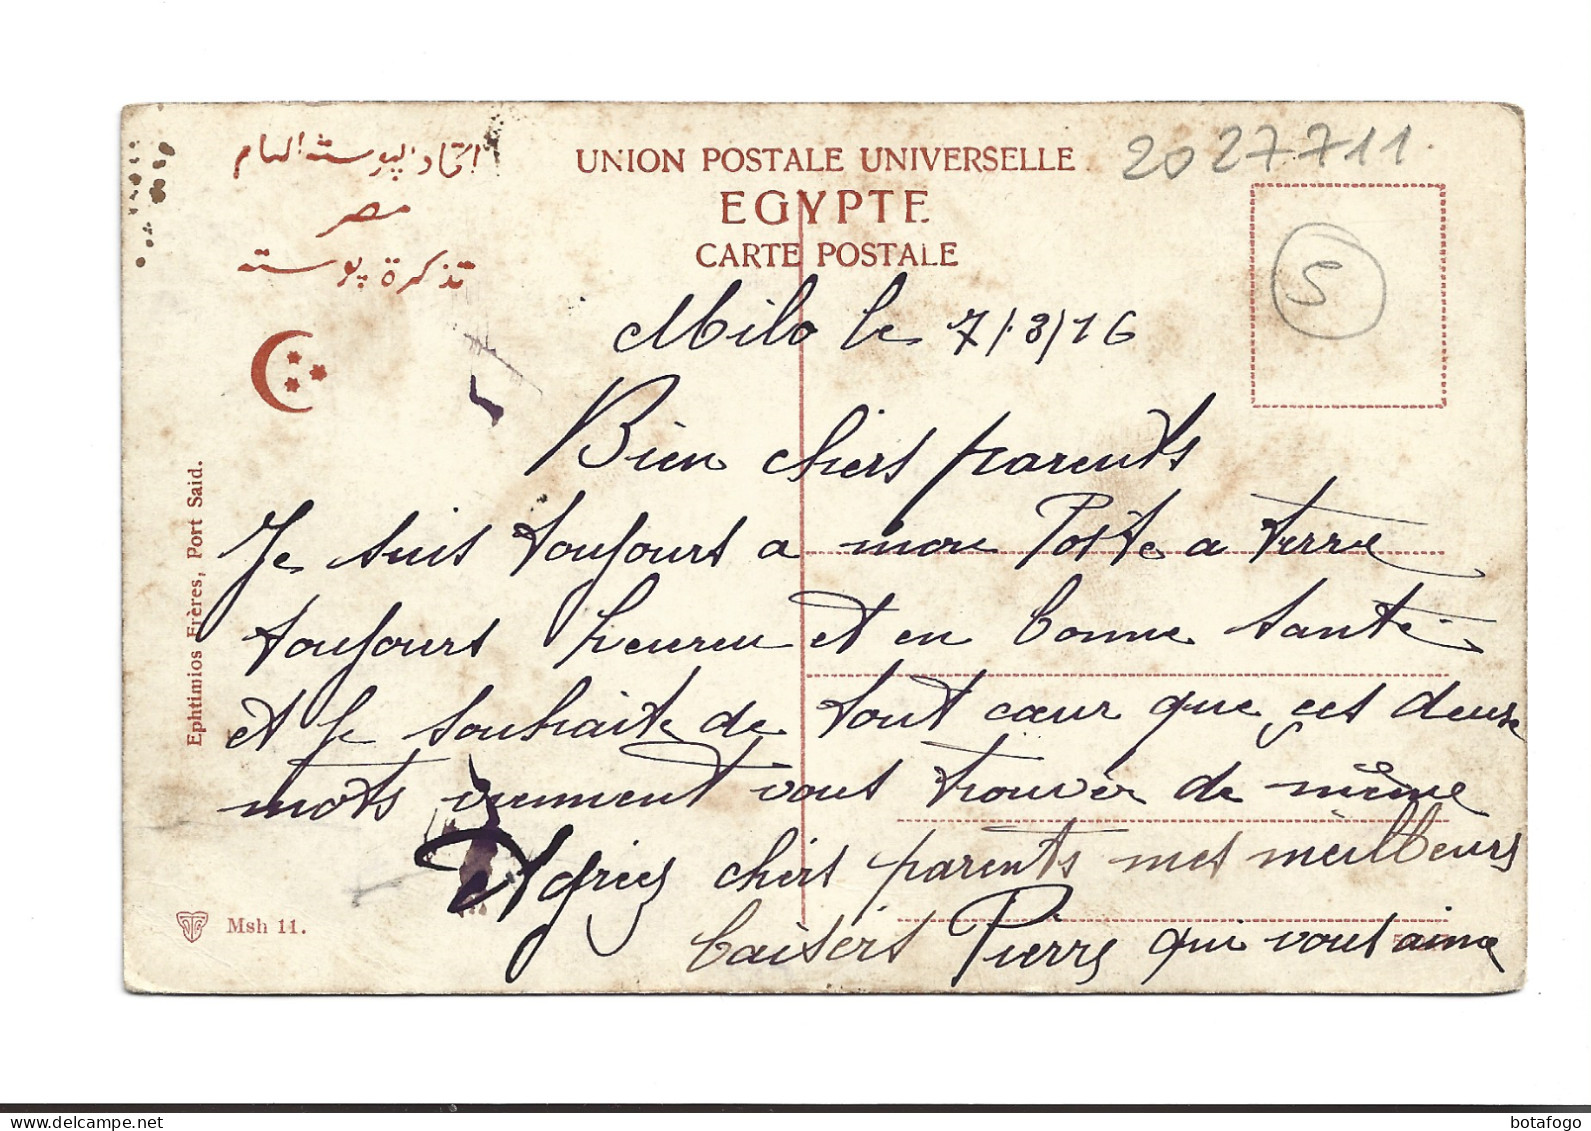 اتحاد البوستة العام
مصر
تذكرة پوسته
UNION POSTALE UNIVERSELLE
EGYPTE
CARTE POSTALE
2027711.
S
Milo le 7/3/16
Bien chers parents
Je suis toujours a mon Poste a terre
toujours heureu et en bonne santé
et je souhaite de tout cœur que ces deux
mots viennent vous trouver de même
Agriez chers parents mes meilleurs
baisers Pierre qui vous aime
Ephtimios Frères, Port Said.
Msh 11.
botafogo